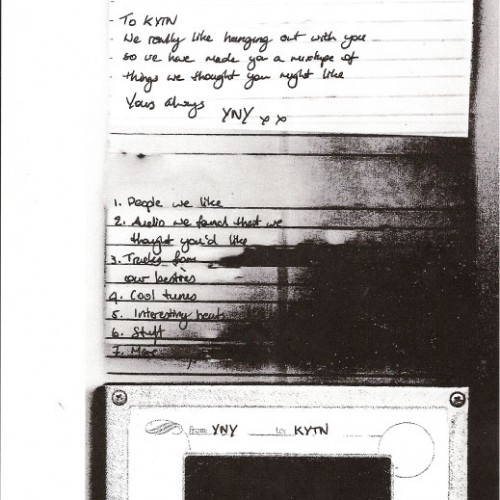 To KYTN
We really like hanging out with you
so we have made you a mixtape of
things we thought you might like
Yours always
YNY x x
1. People we like
2. Audio we found that we
thought you'd like
3. Tracks from
our besties
4. Cool tunes
5. Interesting beats
6. Stuff
7. More
from YNY to KYTN